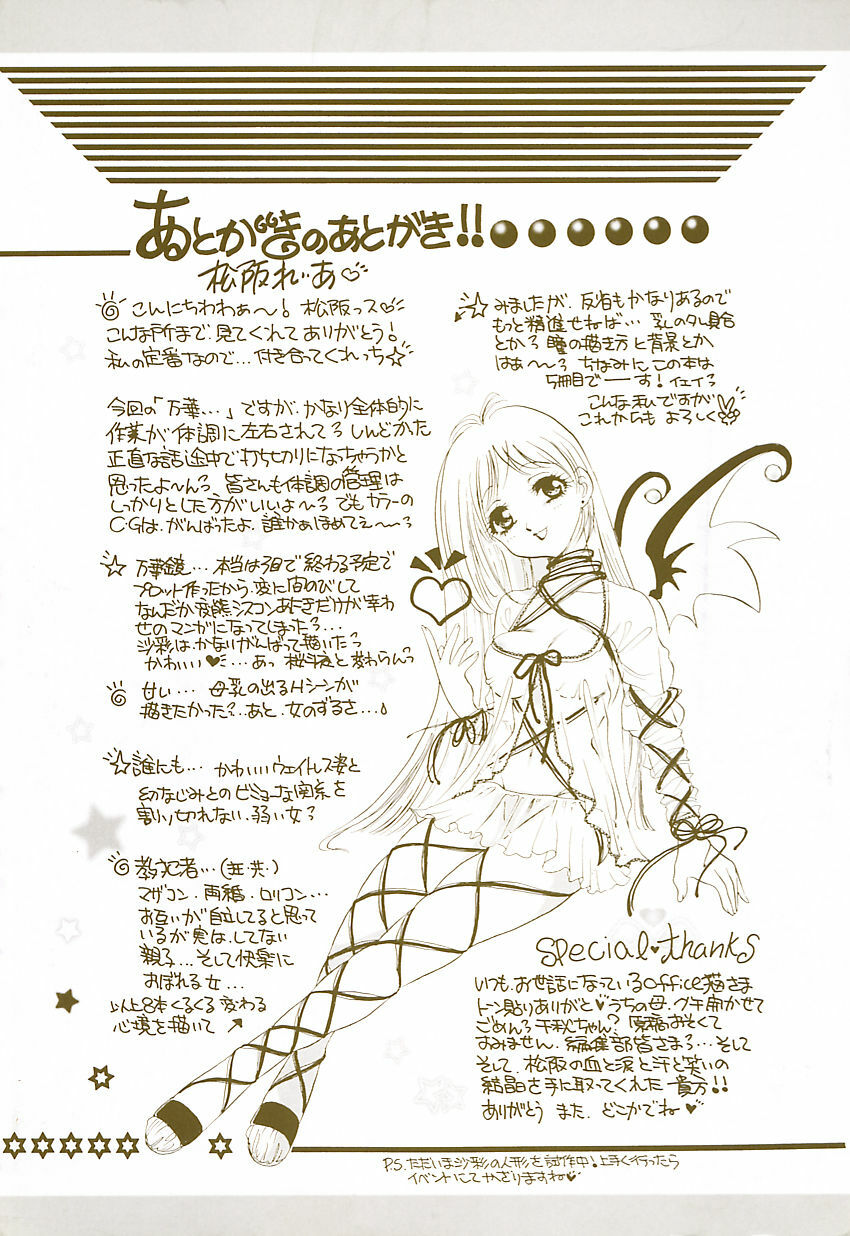 あとがきのあとがき!!
松阪れいあ♡
こんにちわわぁ〜! 松阪っス♡
こんな所まで、見てくれてありがとう!
私の定番なので…付き合ってくれっち☆
今回の「万華…」ですが、かなり全体的に
作業が体調に左右されてろしんどかた
正直な話途中で打ち切りになっちゃうかと
思ったよ〜んる 皆さんも体調の管理は
しっかりとした方がいいよ〜る でもカラーの
C・Gは、がんばったよ、誰かぁほめてぇ〜る
☆万華鏡…本当は3回で終わる予定で
プロット作ったから、変に間のびして
なんだか変態シスコンあにきだけが幸わ
せのマンガになってしまったる…
沙彩は、かなりがんばって描いたっ
かわいい♥と…あっ 桜斗夜と変わらんっ
甘い… 母乳の出るHシーンが
描きたかった?あと、女のずるさ…♪
☆誰にも… かわいいウェイトレス姿と
幼なじみとのビミョーな関系を
割り切れない、弱い女る
教犯者…(共・犯)
マザコン、再婚、ロリコン…
お互いが自立してると思って
いるが実は、してない
親子…そして快楽に
おぼれる女…
以上8本くるくる変わる
心境を描いて↗
☆みましたが、反省もかなりあるので
もっと精進せねば… 乳のタレ具合
とかる 瞳の描き方と背景とか
はぁ〜る ちなみにこの本は
5冊目でーす! イェイる
こんな私ですが
これからも よろしく
Special♥thanks
いつも、お世話になっているoffice猫さま
トーン貼りありがと♥うちの母、グチ聞かせて
ごめんる千秋ちゃん? 原稿おそくて
すみません、編集部皆さまる…そして
そして、松阪の血と涙と汗と笑いの
結晶を手に取ってくれた貴方!!
ありがとう また、どこかでね♥
P.S.ただいま沙彩の人形を試作中! 上手く行ったら
イベントにてかざりますね♥